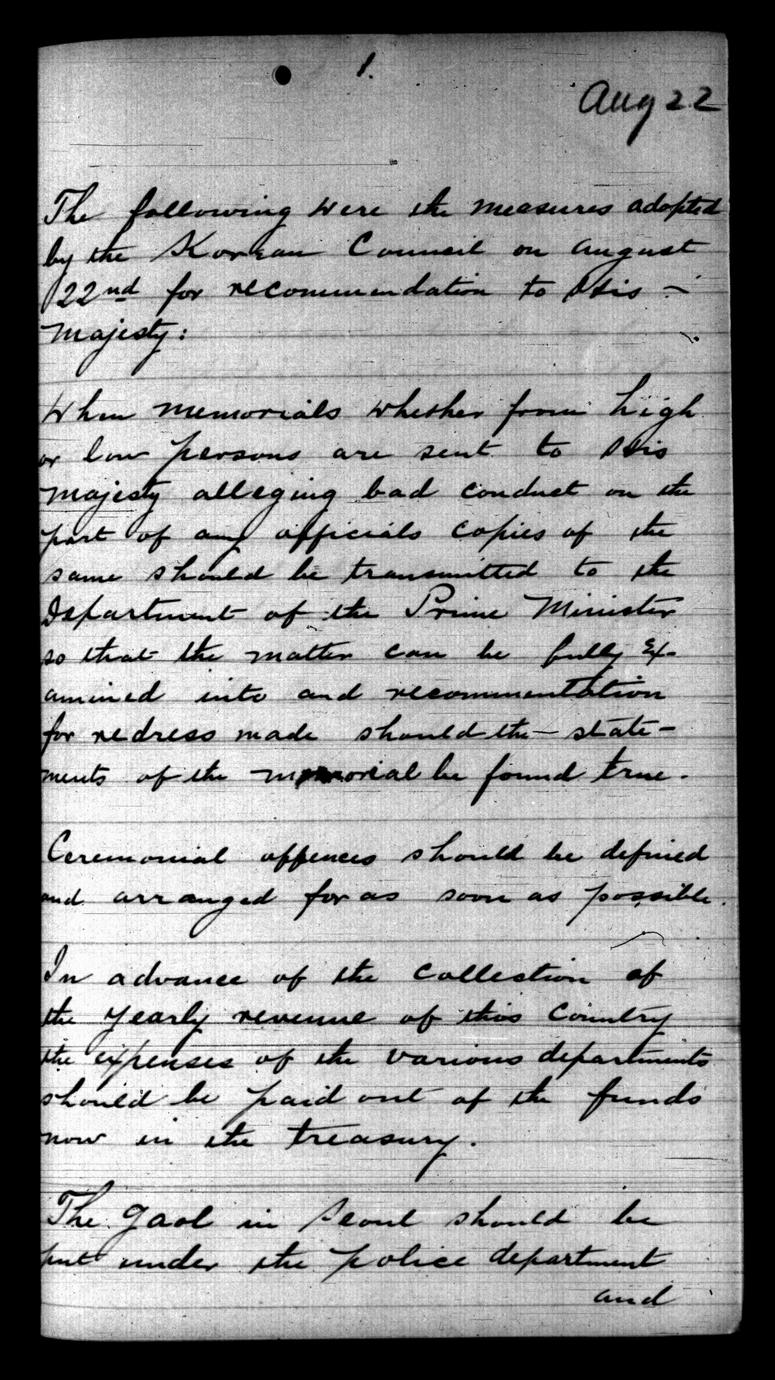 1.
Aug 22
The following were the measures adopted
by the Korean Council on August
22nd for recommendation to His -
Majesty:
When memorials whether from high
or low persons are sent to His
Majesty alleging bad conduct on the
part of any officials copies of the
same should be transmitted to the
Department of the Prime Minister
so that the matter can be fully ex-
amined into and recommentation
for redress made should the - state-
ments of the memorial be found true.
Ceremonial offences should be defined
and arranged for as soon as possible.
In advance of the collection of
the yearly revenue of this Country
the expenses of the various departments
should be paid out of the funds
now in the treasury.
The gaol in Seoul should be
put under the police department
and